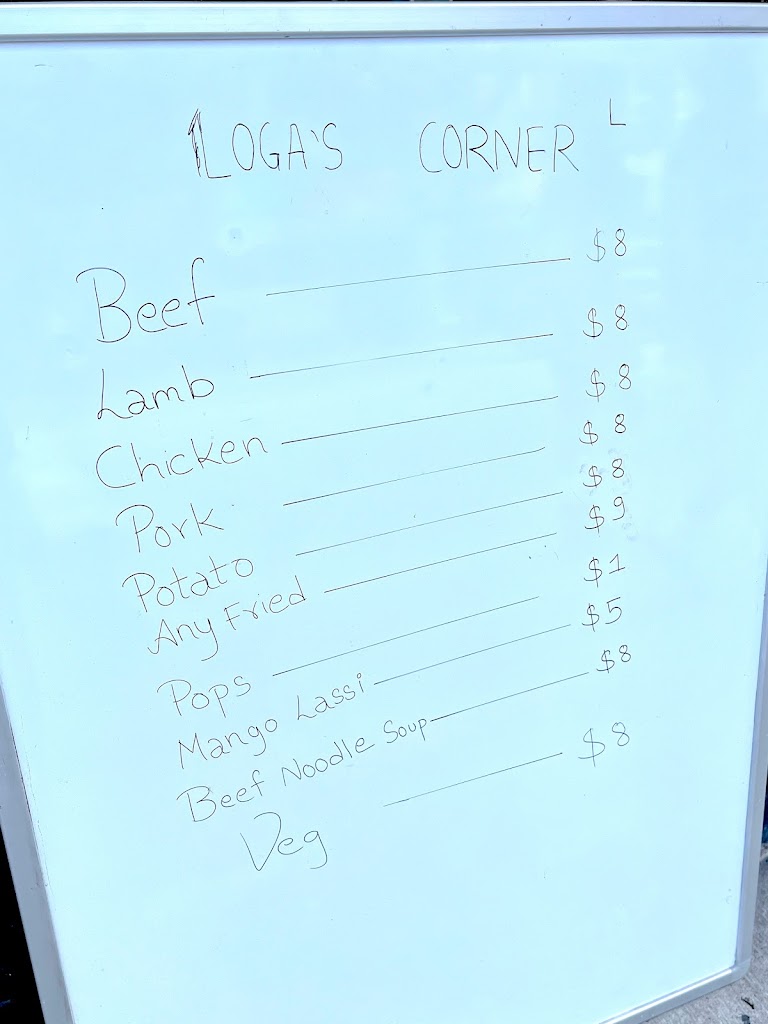 LOGA'S CORNER L
Beef $8
Lamb $8
Chicken $8
Pork $8
Potato $8
Any Fried $9
Pops $1
Mango Lassi $5
Beef Noodle Soup $8
Veg $8